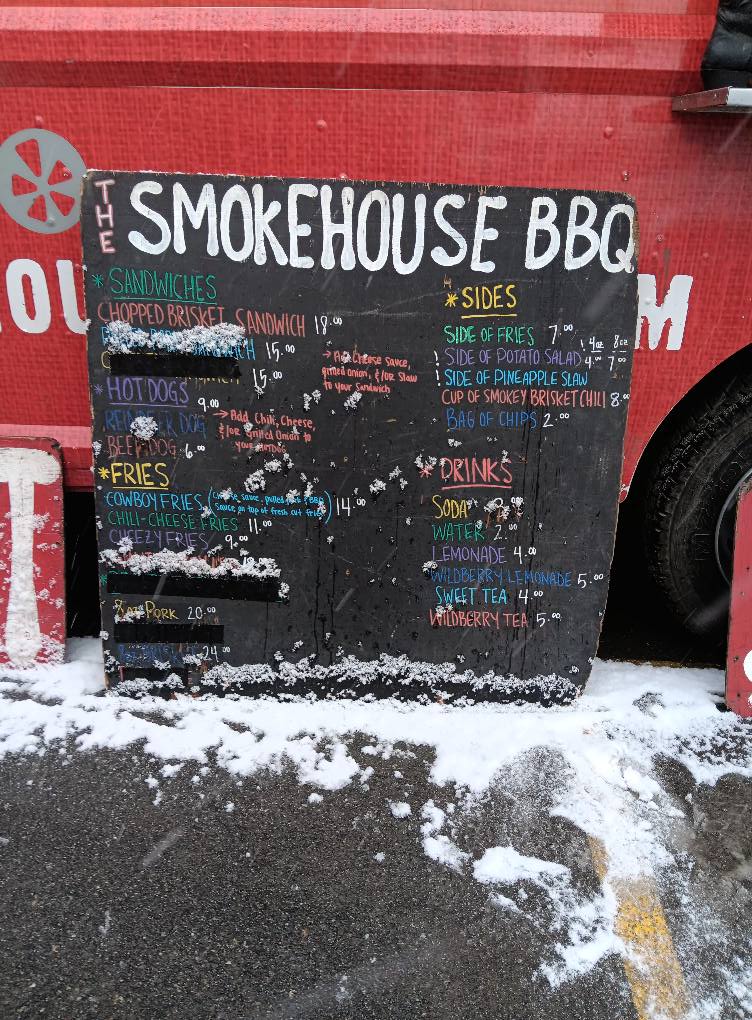 THE SMOKEHOUSE BBQ
* SANDWICHES
CHOPPED BRISKET SANDWICH 18.00
SANDWICH 15.00
15.00
→ Add Cheese Sauce,
grilled onion, &/OR Slaw
to your Sandwich
* HOT DOGS
9.00
REINDEER DOG
BEEF DOG 6.00
→ Add Chili, Cheese,
&/or Grilled Onion to
your HOTDOG
* FRIES
COWBOY FRIES (Cheese sauce, pulled pork & BBQ
Sauce on top of fresh cut fries) 14.00
CHILI-CHEESE FRIES 11.00
CHEEZY FRIES 9.00
PORK 20.00
24.00
* SIDES
SIDE OF FRIES 7.00
4oz 8oz
! SIDE OF POTATO SALAD 4.00 7.00
! SIDE OF PINEAPPLE SLAW
CUP OF SMOKEY BRISKET CHILI 8.00
BAG OF CHIPS 2.00
* DRINKS
SODA
WATER 2.00
LEMONADE 4.00
WILDBERRY LEMONADE 5.00
SWEET TEA 4.00
WILDBERRY TEA 5.00
OU
M
T